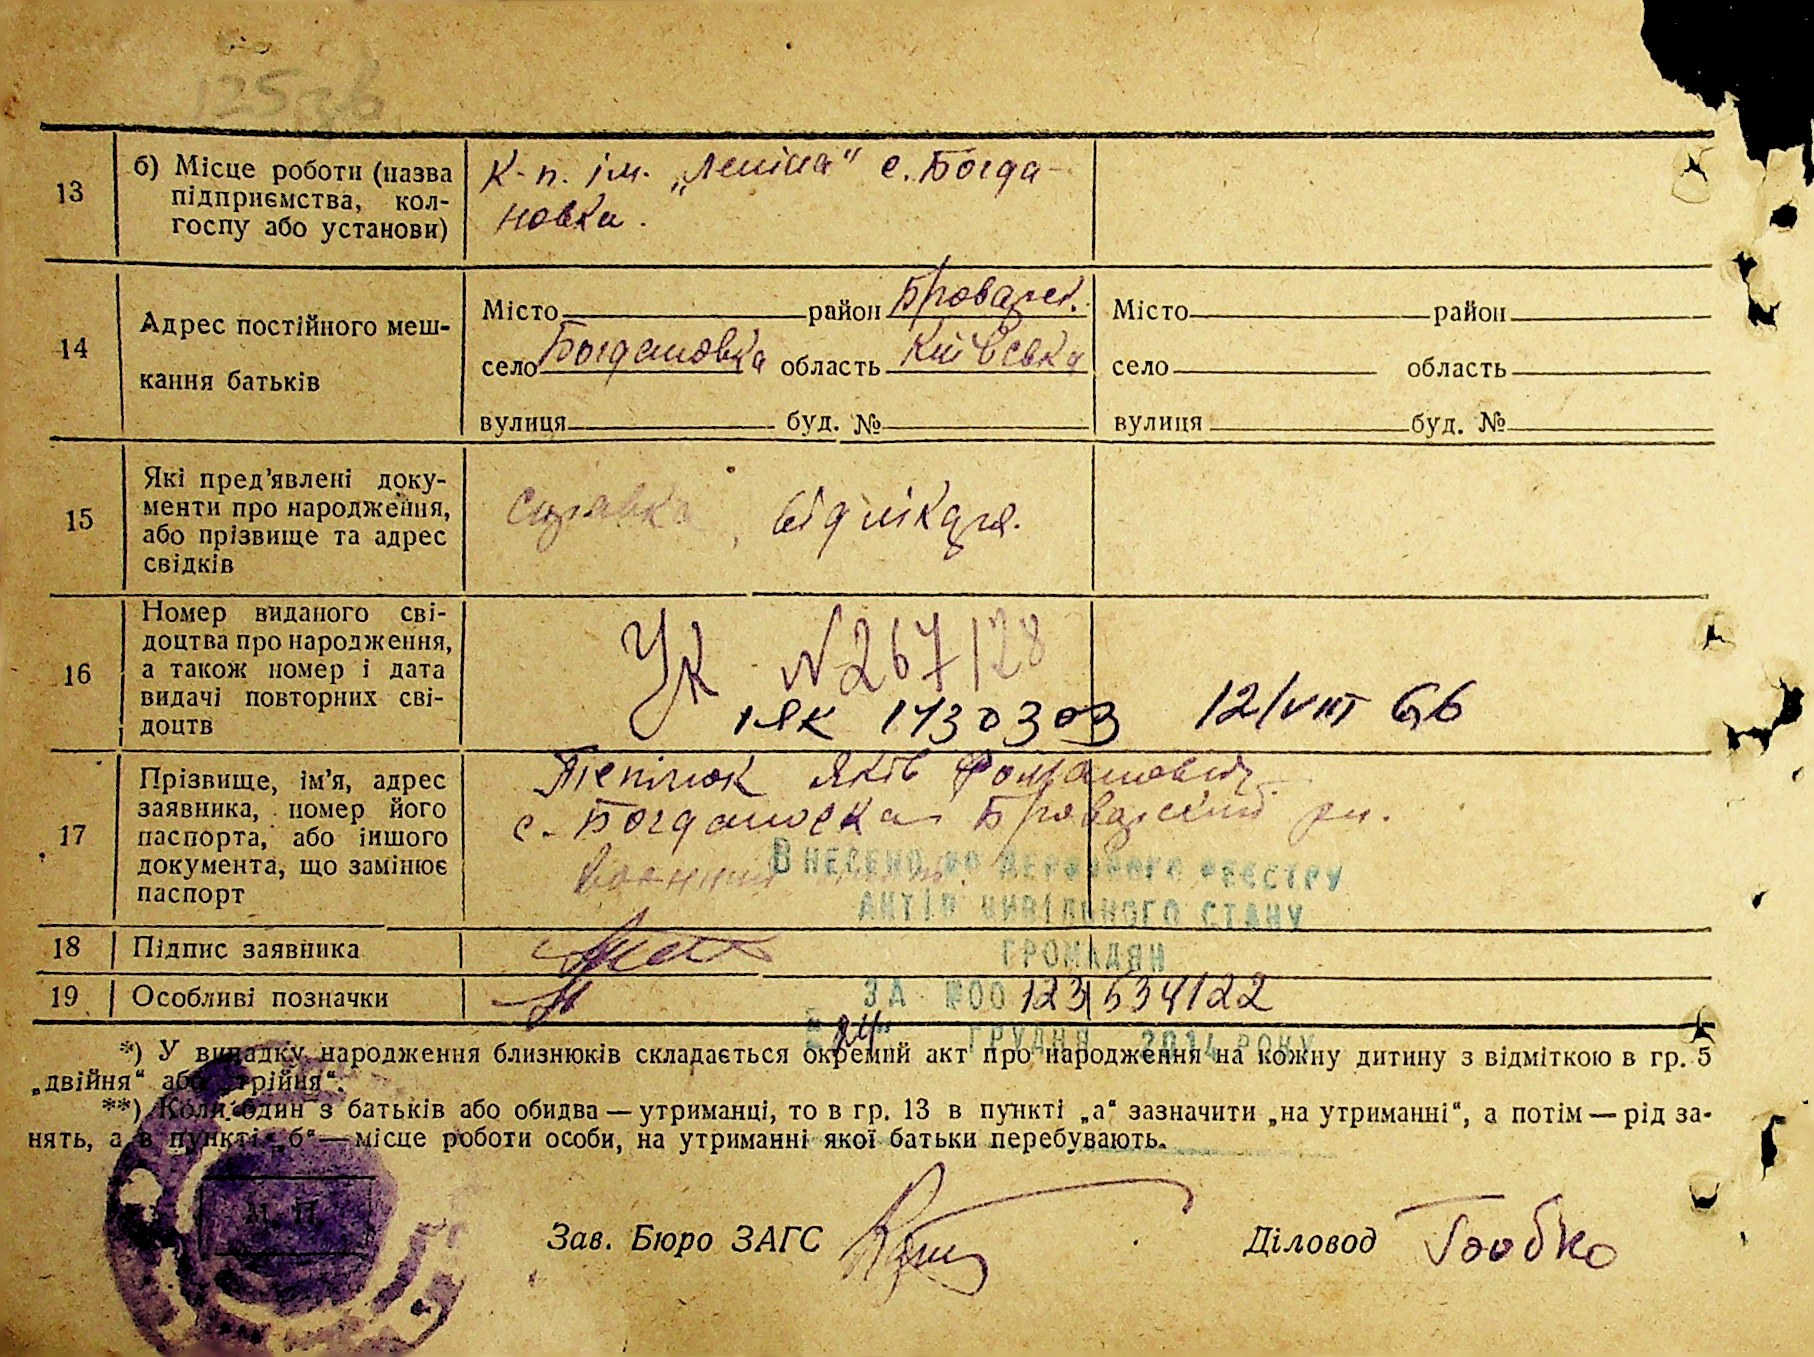 13
б) Місце роботи (назва
підприємства, кол-
госпу або установи)
К-п. ім. „Леніна“ с. Богда-
новка.
14
Адрес постійного меш-
кання батьків
Місто район Броварськ.
село Богдановка область Київська
вулиця буд. №
Місто район
село область
вулиця буд. №
15
Які пред’явлені доку-
менти про народження,
або прізвище та адрес
свідків
Справка, від лікаря.
16
Номер виданого сві-
доцтва про народження,
а також номер і дата
видачі повторних сві-
доцтв
УК N267128
1730303 12/VIII 66
17
Прізвище, ім’я, адрес
заявника, номер його
паспорта, або іншого
документа, що замінює
паспорт
Яків Романович
с. Богдановка Броварский рн.
Внесено до Державного реєстру
актів цивільного стану
громадян
за №00123534122
"24" грудня 2014 року
18 Підпис заявника
19 Особливі позначки
*) У випадку народження близнюків складається окремий акт про народження на кожну дитину з відміткою в гр. 5
„двійня“ або „трійня“.
**) Коли один з батьків або обидва — утриманці, то в гр. 13 в пункті „а“ зазначити „на утриманні“, а потім — рід за-
нять, а в пункті „б“ — місце роботи особи, на утриманні якої батьки перебувають.
М. П.
Зав. Бюро ЗАГС
Діловод